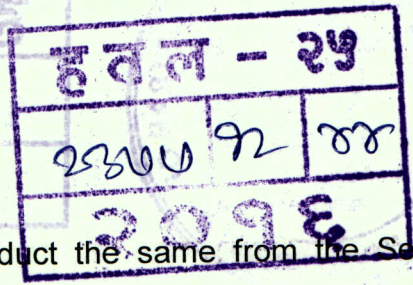 हवल - २५
२३७७ १२ ४४
२०१६
duct the same from the Se